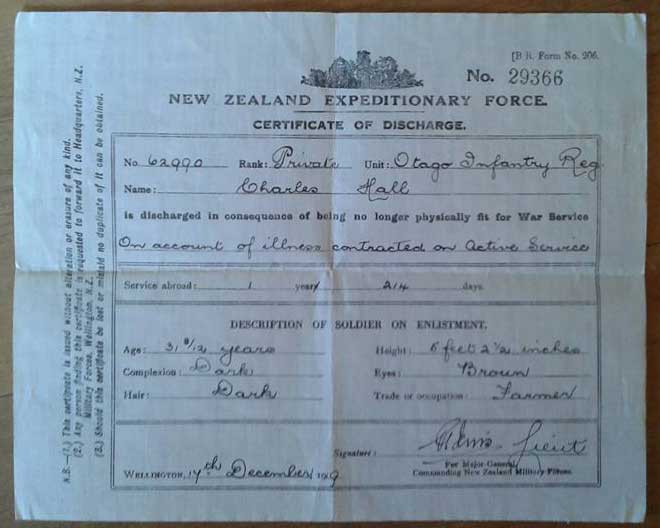 [B.R. Form No. 206.
No. 29366
NEW ZEALAND EXPEDITIONARY FORCE.
CERTIFICATE OF DISCHARGE.
No. 62990 Rank: Private Unit: Otago Infantry Reg
Name: Charles Hall
is discharged in consequence of being no longer physically fit for War Service
On account of illness contracted on Active Service
Service abroad: 1 year 214 days.
DESCRIPTION OF SOLDIER ON ENLISTMENT.
Age: 31 8/12 years Height: 5 feet 2½ inches
Complexion: Dark Eyes: Brown
Hair: Dark Trade or occupation: Farmer
Signature: Lieut
For Major-General,
WELLINGTON, 17th December, 1919 Commanding New Zealand Military Forces.
N.B.—(1.) This certificate is issued without alteration or erasure of any kind.
(2.) Any person finding this certificate is requested to forward it to Headquarters, N.Z.
Military Forces, Wellington, N.Z.
(3.) Should this certificate be lost or mislaid no duplicate of it can be obtained.